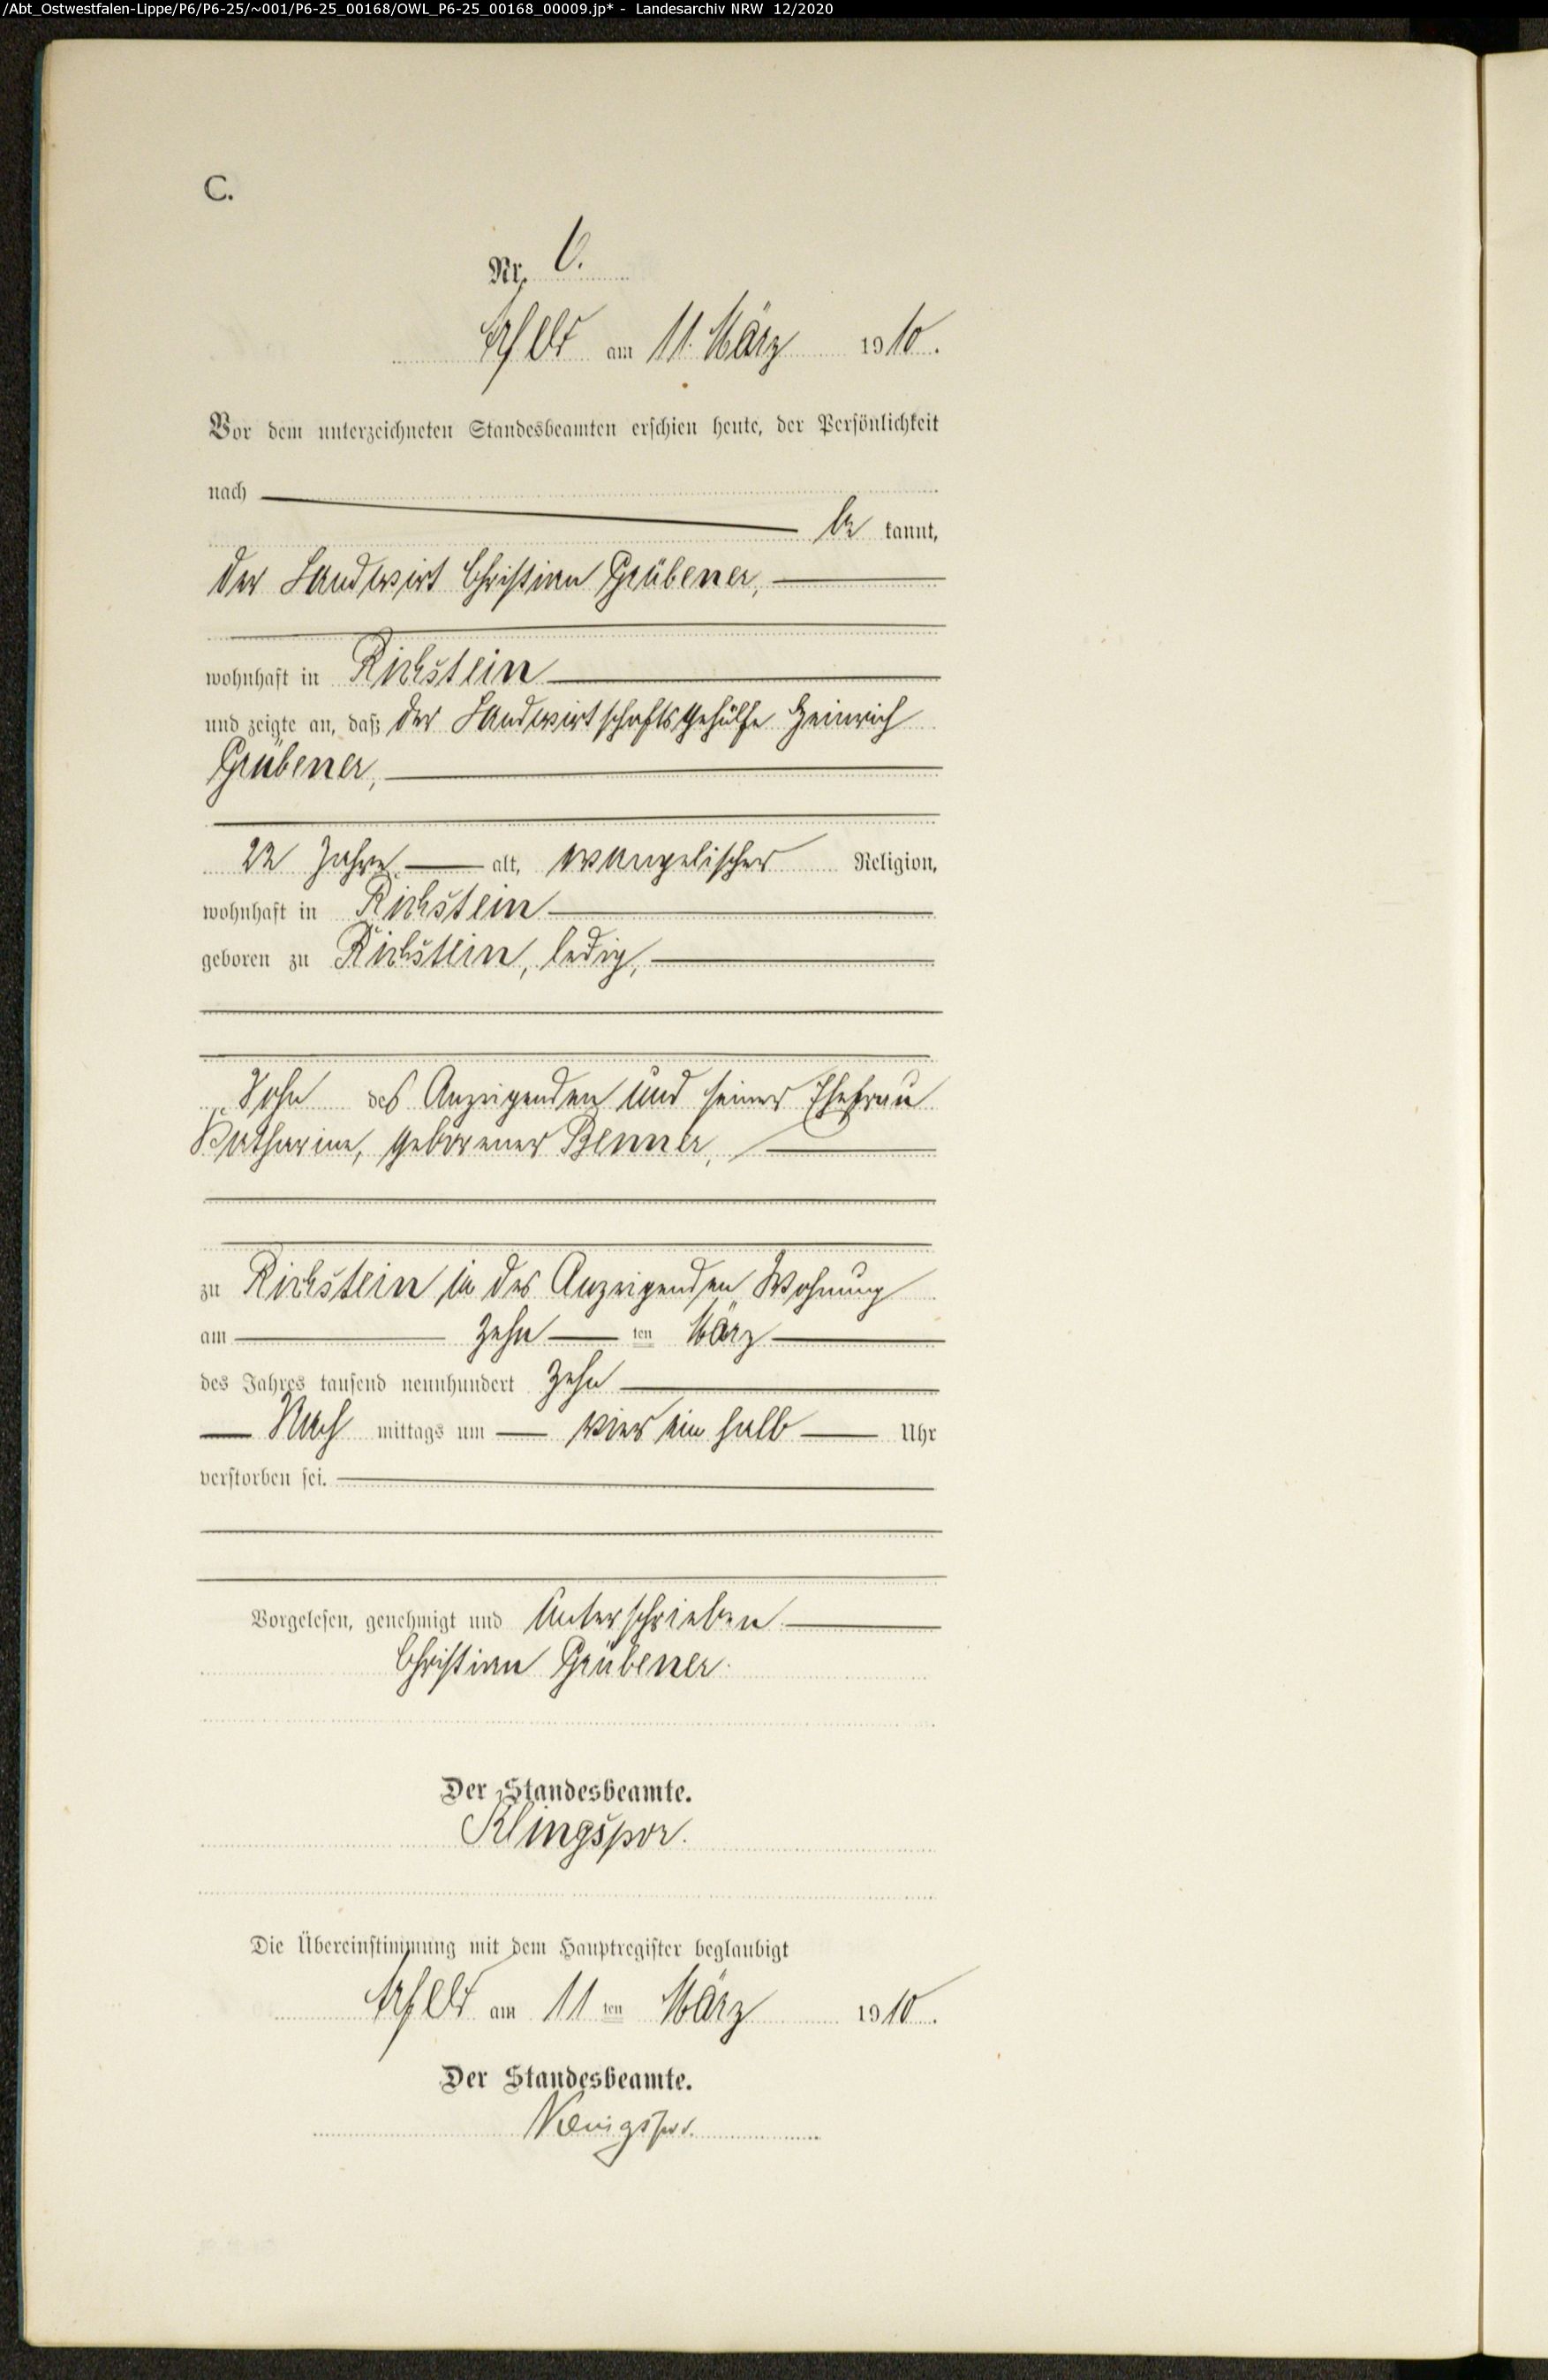 /Abt_Ostwestfalen-Lippe/P6/P6-25/~001/P6-25_00168/OWL_P6-25_00168_00009.jp* - Landesarchiv NRW 12/2020
C.
Nr. 6.
Arfeld am 11. März 1910.
Vor dem unterzeichneten Standesbeamten erschien heute, der Persönlichkeit
nach
be kannt,
der Landwirt Christian Grübener,
wohnhaft in Richstein
und zeigte an, daß der Landwirtschaftsgehülfe Heinrich
Grübener,
22 Jahre alt, evangelischer Religion,
wohnhaft in Richstein
geboren zu Richstein, ledig,
Sohn des Anzeigenden und seiner Ehefrau
Katharine, geborener Benner,
zu Richstein in des Anzeigenden Wohnung
am zehn ten März
des Jahres tausend neunhundert zehn
Nach mittags um vier ein halb Uhr
verstorben sei.
Vorgelesen, genehmigt und unterschrieben
Christian Grübener.
Der Standesbeamte.
Klingspor.
Die Übereinstimmung mit dem Hauptregister beglaubigt
Arfeld am 11 ten März 1910.
Der Standesbeamte.
Klingspor.